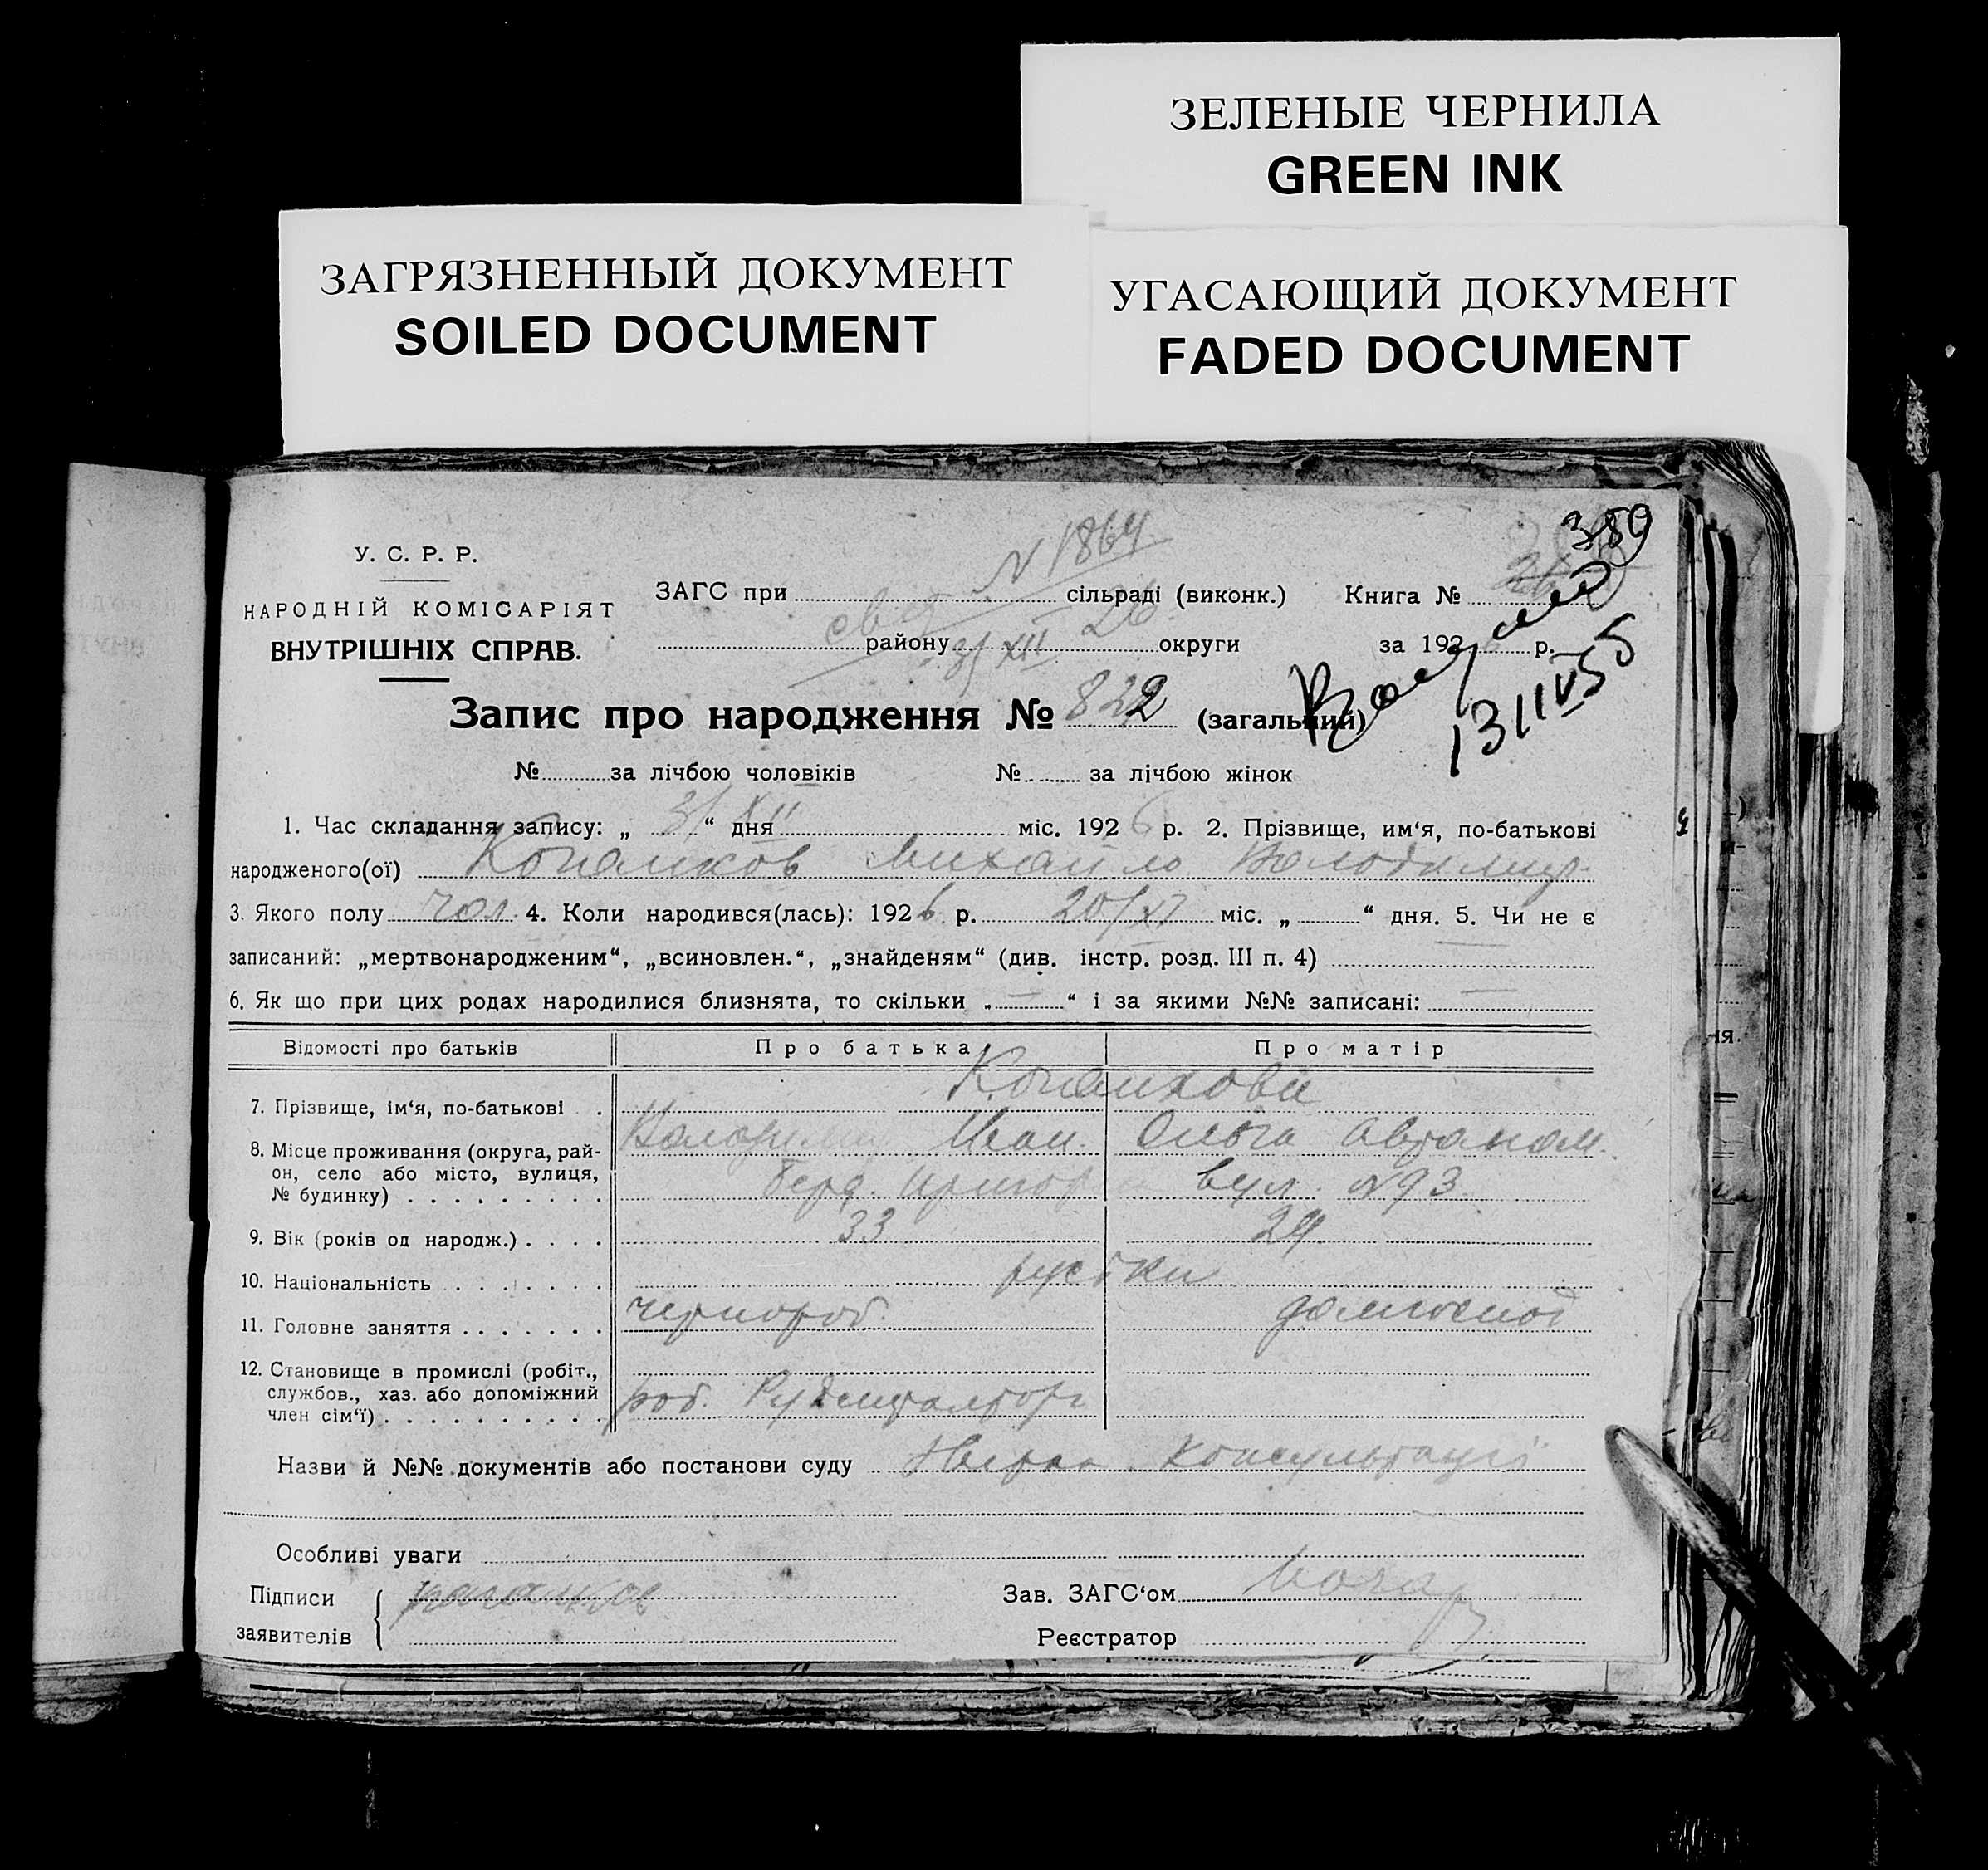 ЗЕЛЕНЫЕ ЧЕРНИЛА
GREEN INK
ЗАГРЯЗНЕННЫЙ ДОКУМЕНТ
SOILED DOCUMENT
УГАСАЮЩИЙ ДОКУМЕНТ
FADED DOCUMENT
389
У. С. Р. Р.
НАРОДНІЙ КОМІСАРІЯТ
ВНУТРІШНІХ СПРАВ.
N 1864
ЗАГС при сільраді (виконк.) Книга №
свід 26
району округи за 192 р.
31 XII
13/IV 55
Запис про народження № 822 (загальний)
№ за лічбою чоловіків № за лічбою жінок
1. Час складання запису: „ 31 XII “ дня міс. 1926 р. 2. Прізвище, им‘я, по-батькові
народженого(ої) Михайло Володимир.
3. Якого полу чол. 4. Коли народився(лась): 1926 р. 20/XI міс. „ “ дня. 5. Чи не є
записаний: „мертвонародженим“, „всиновлен.“, „знайденям“ (див. інстр. розд. III п. 4)
6. Як що при цих родах народилися близнята, то скільки „ “ і за якими №№ записані:
Відомості про батьків Про батька Про матір
7. Прізвище, ім‘я, по-батькові
Володимир Иван. Ольга Автаном.
8. Місце проживання (округа, рай-
он, село або місто, вулиця,
№ будинку) вул. №93
9. Вік (років од народж.) 33 24
10. Національність руські
11. Головне заняття чернороб. домгоспод
12. Становище в промислі (робіт.,
службов., хаз. або допоміжний
член сім‘ї) роб.
Назви й №№ документів або постанови суду консультації
Особливі уваги
Підписи
заявителів
Зав. ЗАГС‘ом
Реєстратор